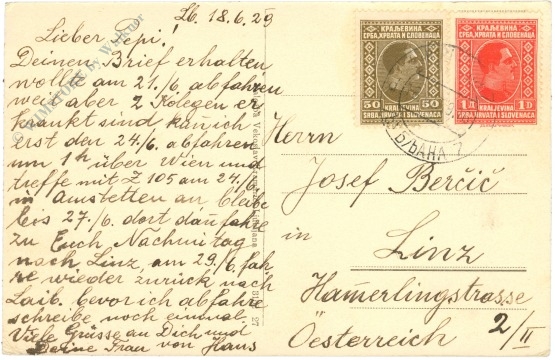 Lb. 18.6.29
Lieber Pepi!
Deinen Brief erhalten
wollte am 21./6. abfahren
weil aber 2 Kolegen er
krankt sind kan̄ ich
erst den 24./6. abfahren
um 1h über Wien und
treffe mit Z 105 am 24./6.
in Amstetten an bleibe
bis 27./6. dort dan̄ fahre
zu Euch Nachmitag
nach Linz, am 29./6. fah
re wieder zurück nach
Laib. bevor ich abfahre
schreibe noch einmal.
Viele Grüsse an Dich und
Deine Frau von Hans
КРАЉЕВИНА
СРБА, ХРВАТА И СЛОВЕНАЦА
50 50
KRALJEVINA
SRBA, HRVATA I SLOVENACA
КРАЉЕВИНА
СРБА, ХРВАТА И СЛОВЕНАЦА
1Д 1D
KRALJEVINA
SRBA, HRVATA I SLOVENACA
Herrn
Josef Berčič
in
Linz
Ham̄erlingstrasse
2/II
Oesterreich